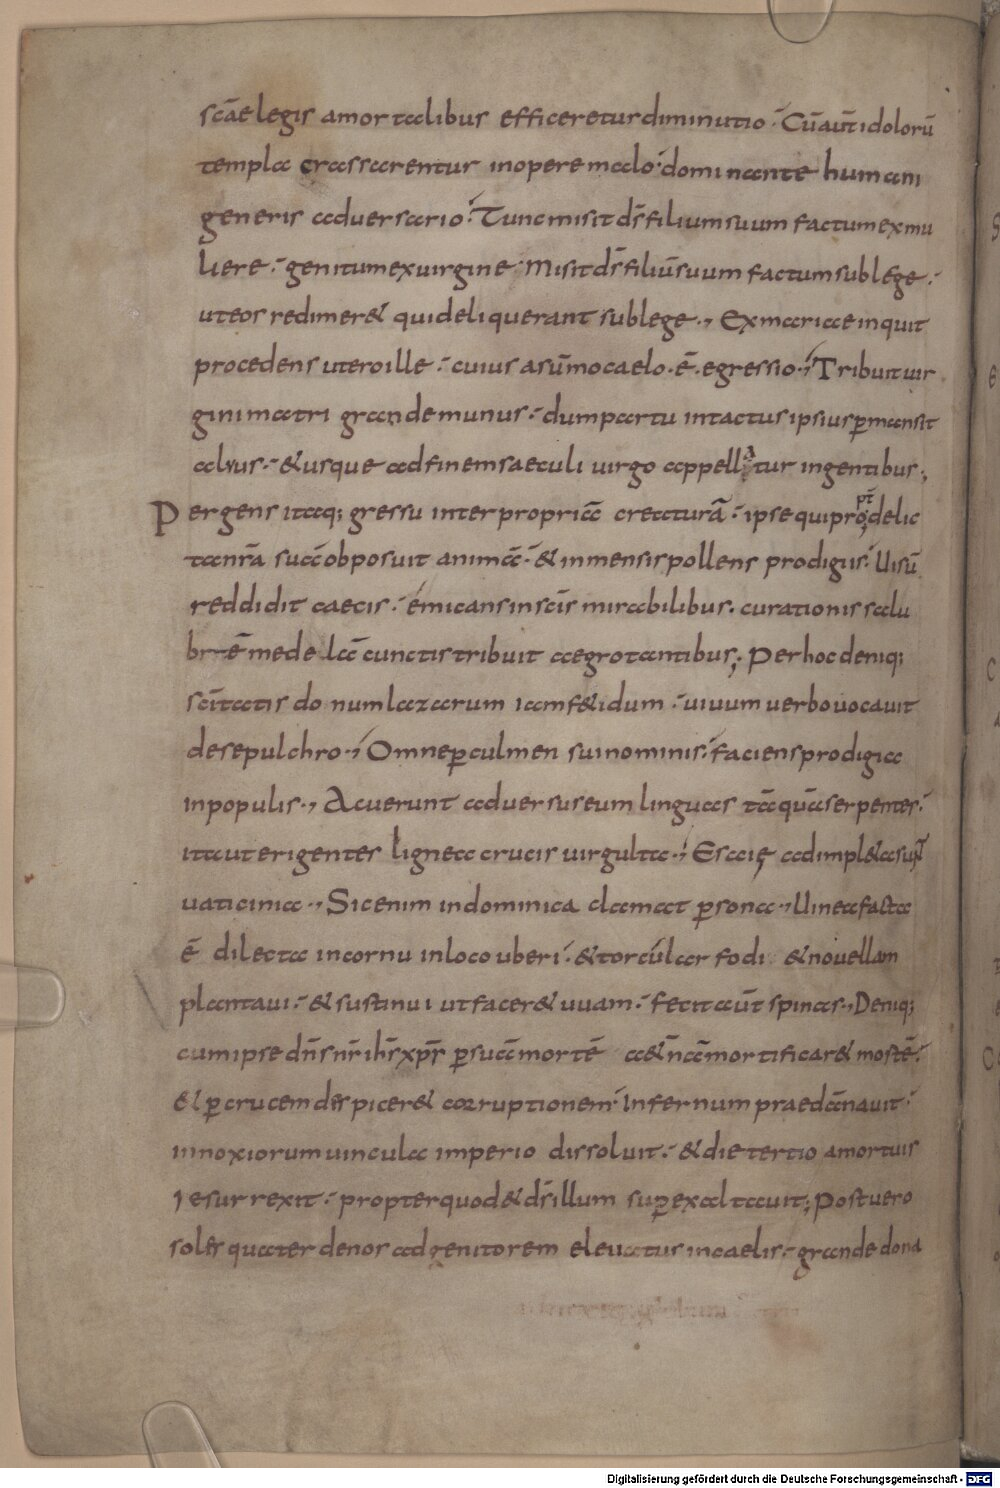 scāe legis amortalibus efficeretur diminutio. Cūaūt idolorū
templa crassarentur inopere malo. dominante humani
generis aduersario. Tunc misit d̄s filium suum factum exmu
liere. genitum exuirgine. Misit d̄s filiū suum factum sub lege.
ut eos redimer& qui deliquerant sub lege., Exmaria e inquit
procedens utero ille. cuius asūmo caelo . ē. egressio., Tribuit uir
gini matri grande munus. dum partu intactus ipsius ꝑmansit
aluus. & usque adfinem saeculi uirgo appellatur ingentibus;
Pergens itaq; gressu inter propriā creaturā. ipse qui pro p̄t delic
ta nr̄a suā obposuit animā. & inmensis pollens prodigiis. Uisū
reddidit caecis. emicans in sc̄is mirabilibus. curationis salu
brē medelā cunctis tribuit aegrotantibus; Per hoc deniq;
sc̄itatis donum lazarum iam f&idum. uiuum uerbo uocauit
de sepulchro., Omne ꝑ culmen sui nominis. faciens prodigia
in populis., Acuerunt aduersus eum linguas tāquā serpentes.
ita ut erigentes lignea crucis uirgulta., Esaię adimpl& asup̄
uaticinia., Sic enim indominica clamat ꝑsona., Uinea facta
ē dilecta in cornu in loco uberi. & torcular fodi & nouellam
plantaui. & sustinui ut facer& uuam. fecit aūt spinas., Deniq;
cum ipse dn̄s nr̄ ih̄s xp̄s ꝑ suā mortē a&nā mortificar& mortē.
& ꝑ crucem despicer& corruptionem. Infernum praedānauit.
innoxiorum uincula imperio dissoluit. & die tertio amortuis
resurrexit. propter quod & d̄s illum suꝑexaltauit; Post uero
soles quater denos ad genitorem eleuatus in caelis. grande dona
Digitalisierung gefördert durch die Deutsche Forschungsgemeinschaft - DFG